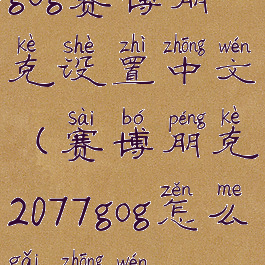 gog赛博朋
kè shè zhì zhōng wén
克设置中文
sài bó péng kè
(赛博朋克
zěn me
2077gog怎么
gǎi zhōng wén